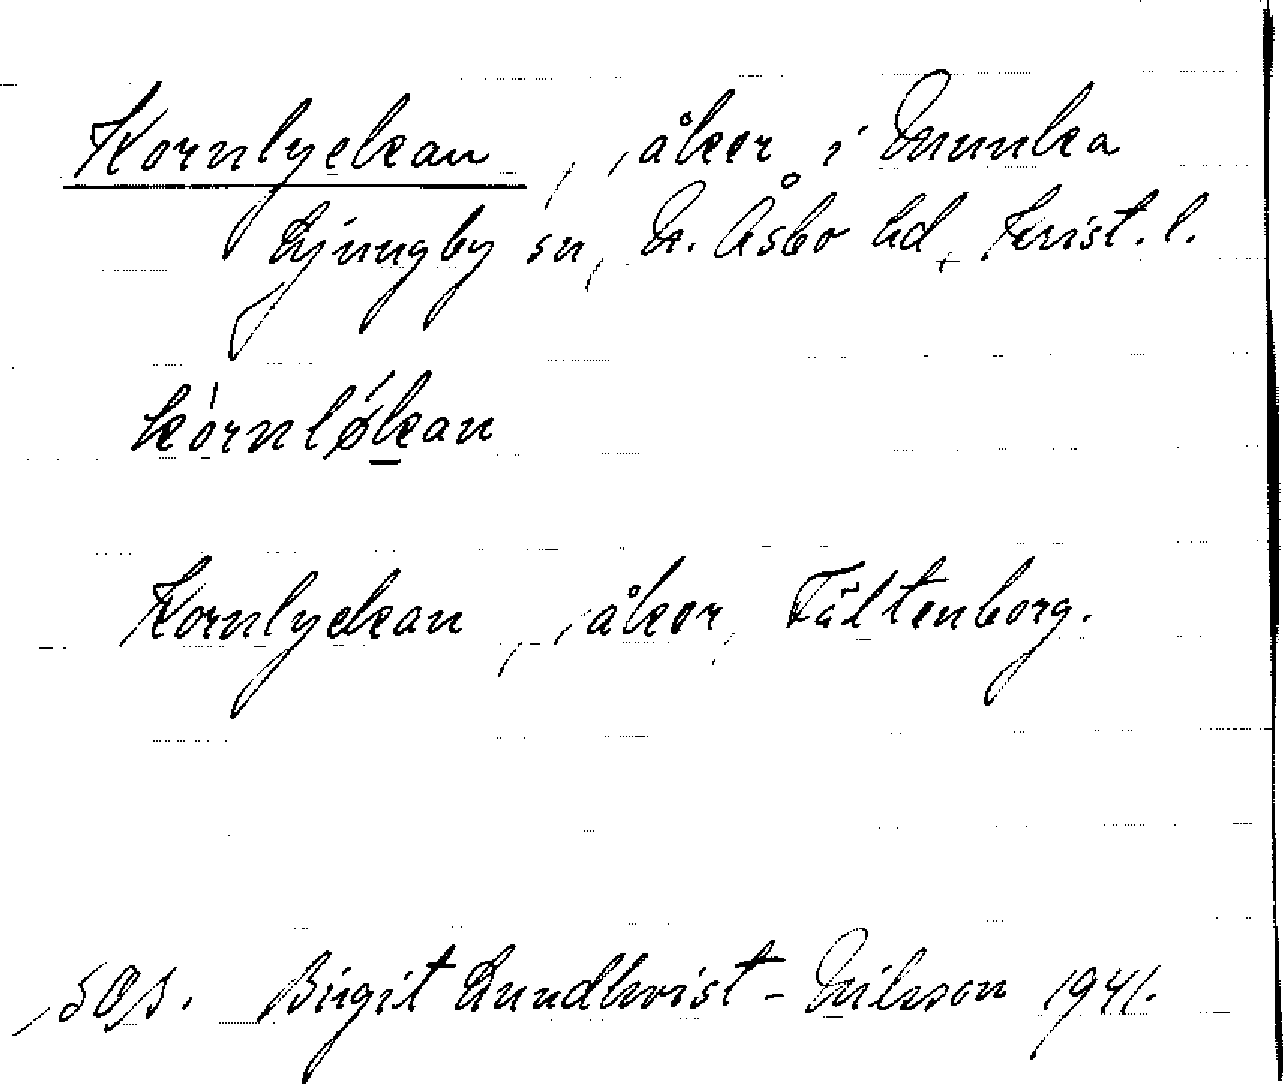 Kornlyckan, åker i Munka
Ljungby sn, N. Åsbo hd, Krist. l.
kòrnløkan
Kornlyckan, åker, Fältenborg.
Birgit Lundkvist-Nilsson 1941.